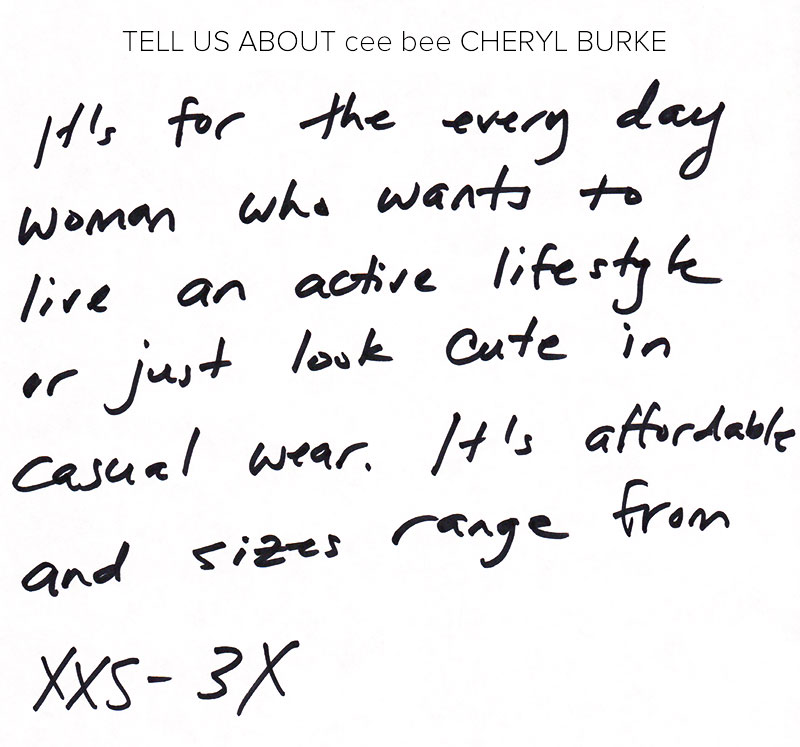 TELL US ABOUT cee bee CHERYL BURKE
It's for the every day
woman who wants to
live an active lifestyle
or just look cute in
casual wear. It's affordable
and sizes range from
XXS - 3X